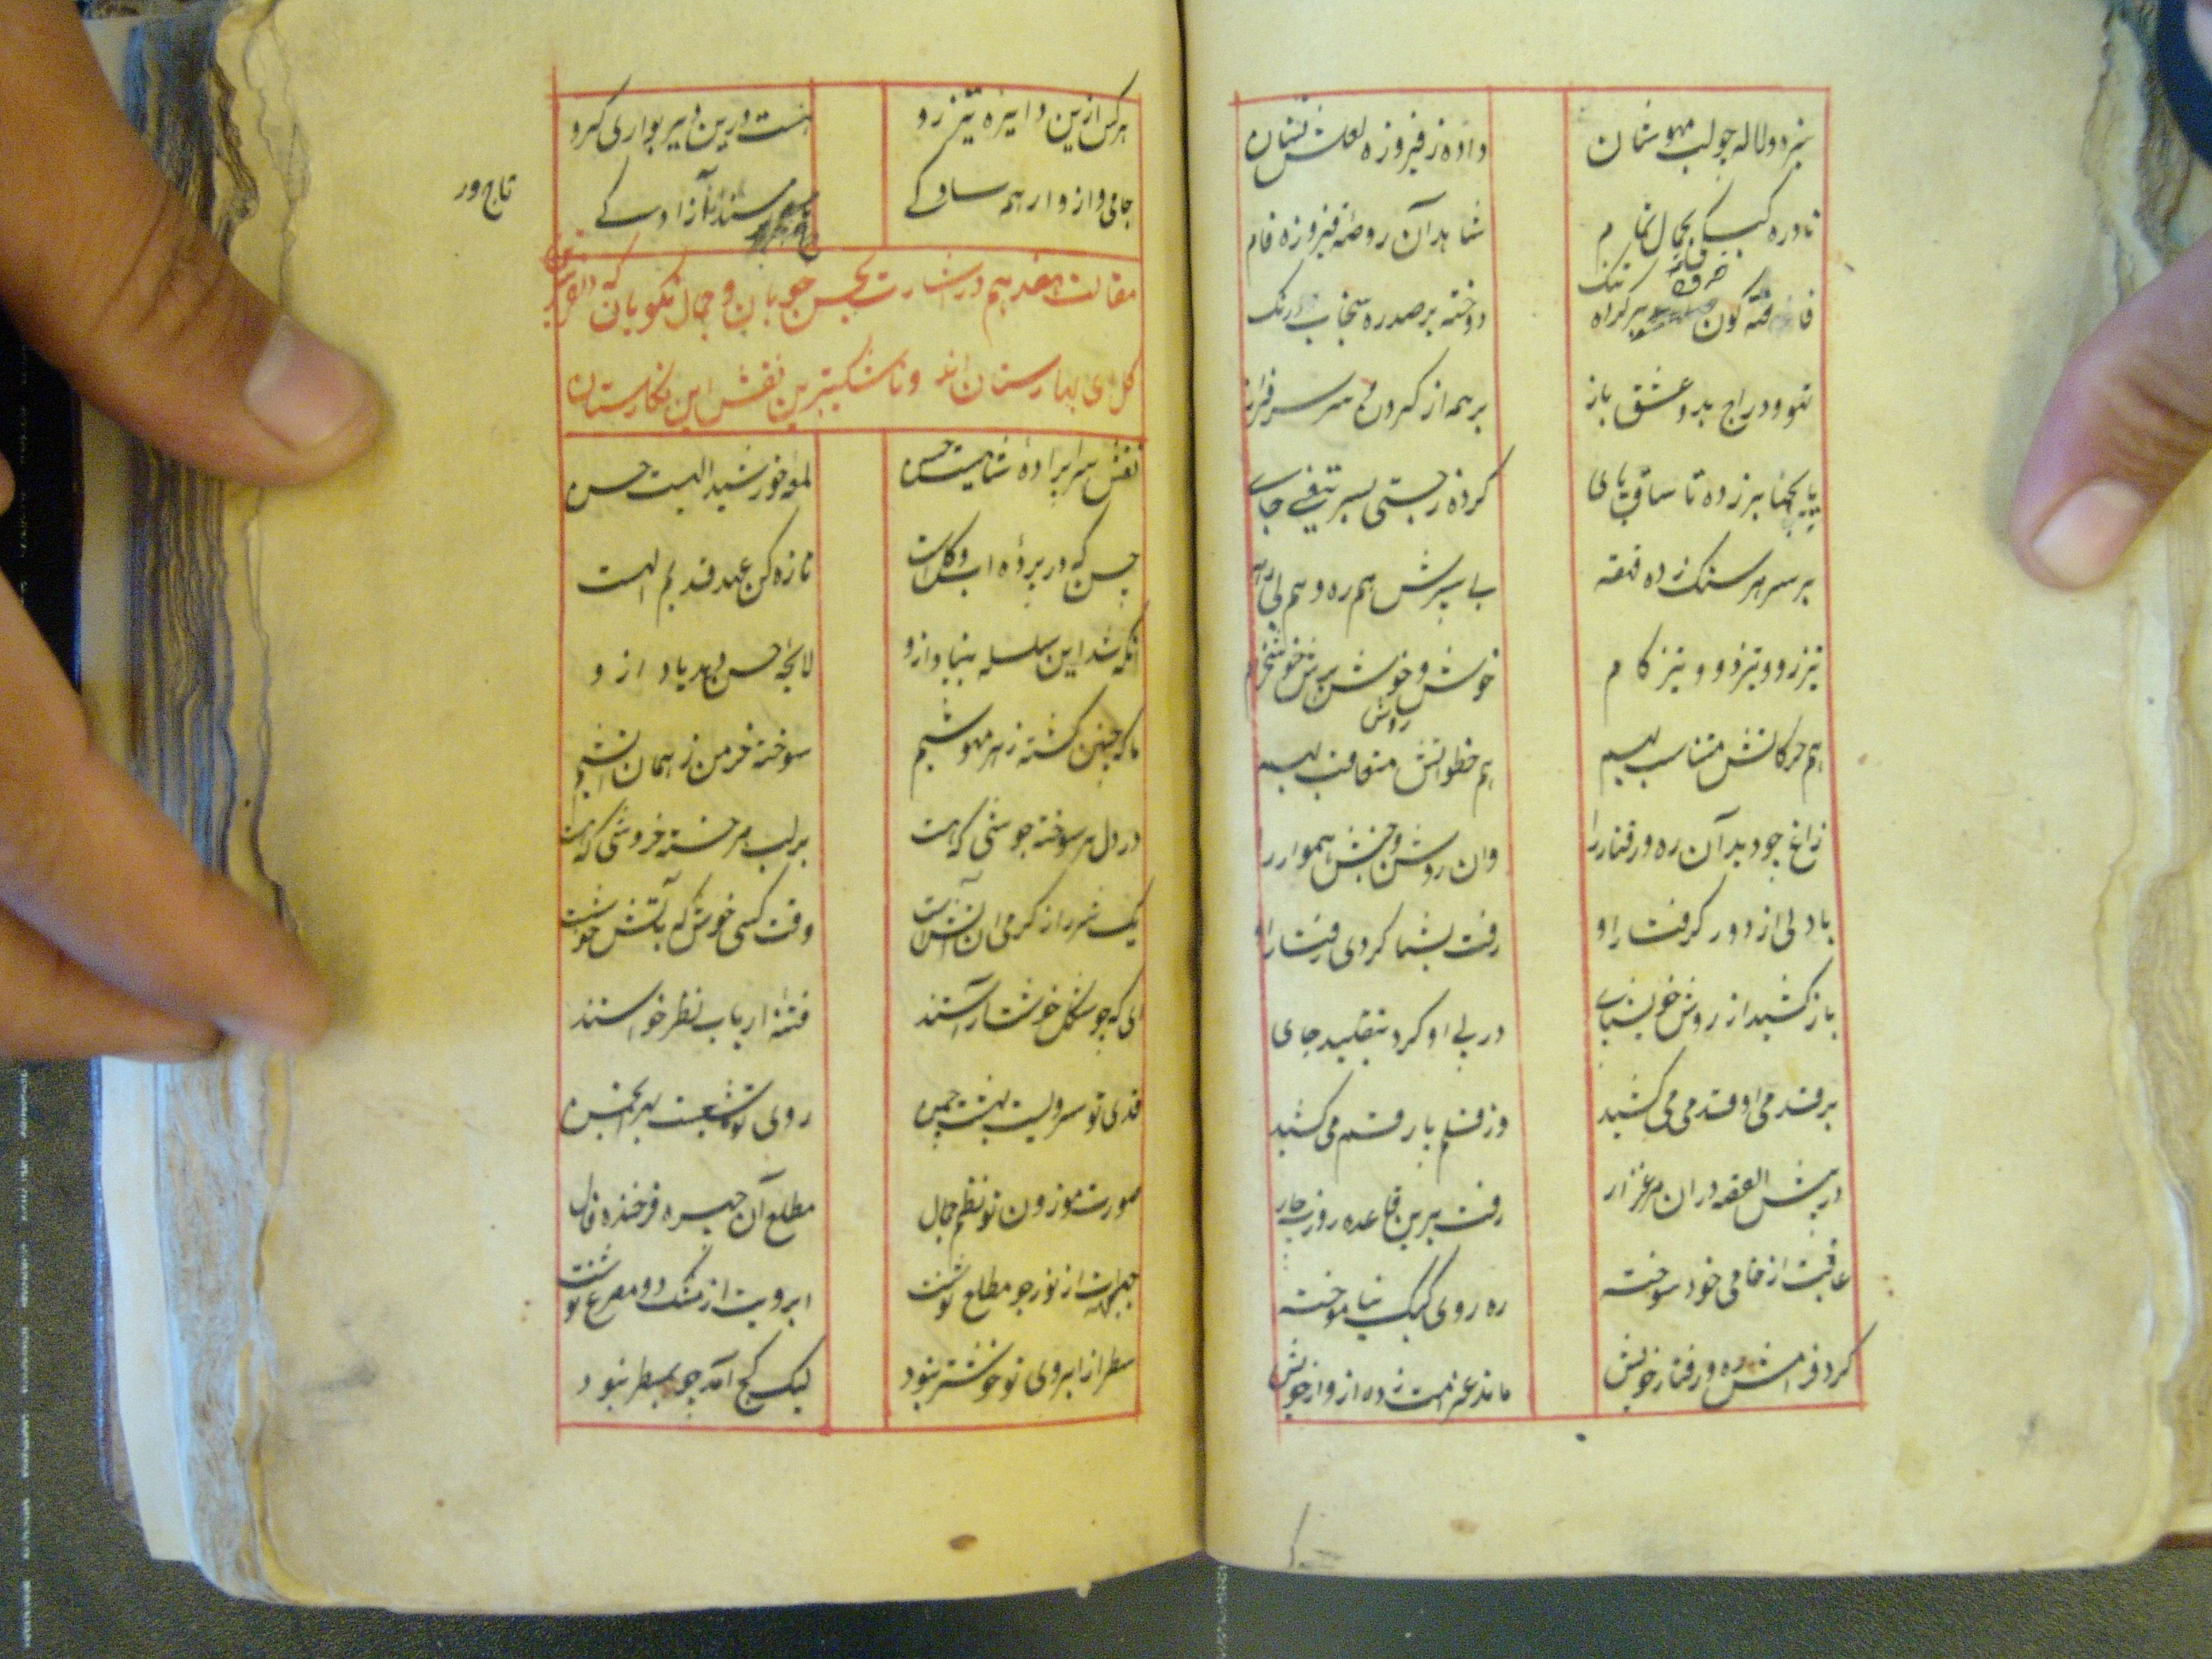 سبزه و لاله چو لب مهوشان داده ز فیروزه لعلش نشان
نادره کبکی بجمال تمام شاهد آن روضه فیروزه فام
فاخته گون صدره ببر کرده تنک دوخته بر صدره سنجاب رنک
تیهو و دراج بدو عشق باز بر همه از کردن و سر سرفراز
پایچها بر زده تا ساق پای کرده ز چستی بسر تیغ جای
بر سر هر سنک زده قهقه پی سپرش هم ره و هم بی رهه
تیز رو و تیز دو و تیز کام خوش روش و خوش پرش و خوشخرام
روش
هم حرکاتش متناسب بهم هم خطواتش متقارب بهم
زاغ چو دید آن ره و رفتار را وان روش و جنبش هموار را
با دلی از دور کرفتار او رفت بشاکردی رفتار او
باز کشید از روش خویش پای در پی او کرد بتقلید جای
بر قدم او قدمی می کشید وز قلم پا رقمی می کشید
در پیش القصه در ان مرغزار رفت برین قاعده روزی چار
عاقبت از خامی خود سوخته ره روی کبک نیاموخته
کرد فرامش ره و رفتار خویش ماند غرامت زده از کار خویش
هر کس ازین دایره تیز رو هست درین دیر بواری کرو
جامی و از وا رهمه سادکی مسند آزادکی
تاج ور
مقالت هفدهم در اشارت بحسن خوبان و جمال نکویان که
کلهای بهارستان اند و ناشکیبترین نقش این نکارستان
نقش سراپرده شاهیست حسن لمعه خورشید الهیست حسن
حسن که در پرده اب و کلست تازه کن عهد قدیم دلست
آنکه شد این سلسله بنیاد ازو لایحه حسن دهد یاد ازو
ما که چنین کشته ز هر مهوشیم سوخته خرمن ز همان اتشیم
در دل هر سوخته جوشی که هست بر لب هر خسته خروشی که هست
یک شرر از کرمی ان اتش است وقت کسی خوش که بآتش خوش است
ای که چو شکل خوشت آراستند فتنه ارباب نظر خواستند
قد تو سرویست بهشت چمن روی تو شمعیست بهر انجمن
صورت موزون تو نظم جمال مطلع آن چهره فرخنده فال
جبهت از نور چو مطلع نوشت ابرویت از مشک دو مصرع نوشت
سطر از ابروی تو خوشتر نبود لیک کج آمد چو بمسطر نبود